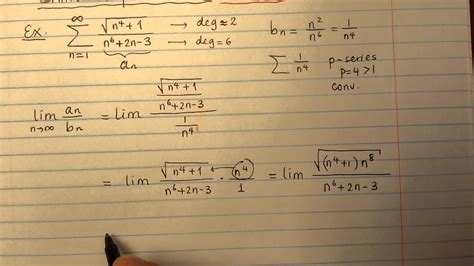 Ex. ∞∑n=1 √(n⁴+1) / (n⁶+2n-3) → deg≈2 → deg=6
aₙ
bₙ = n²/n⁶ = 1/n⁴
∑ 1/n⁴ p-series
p=4>1
conv.
lim n→∞ aₙ/bₙ = lim (√(n⁴+1) / (n⁶+2n-3)) / (1/n⁴)
= lim √(n⁴+1) / (n⁶+2n-3) · n⁴/1 = lim √((n⁴+1)n⁸) / (n⁶+2n-3)